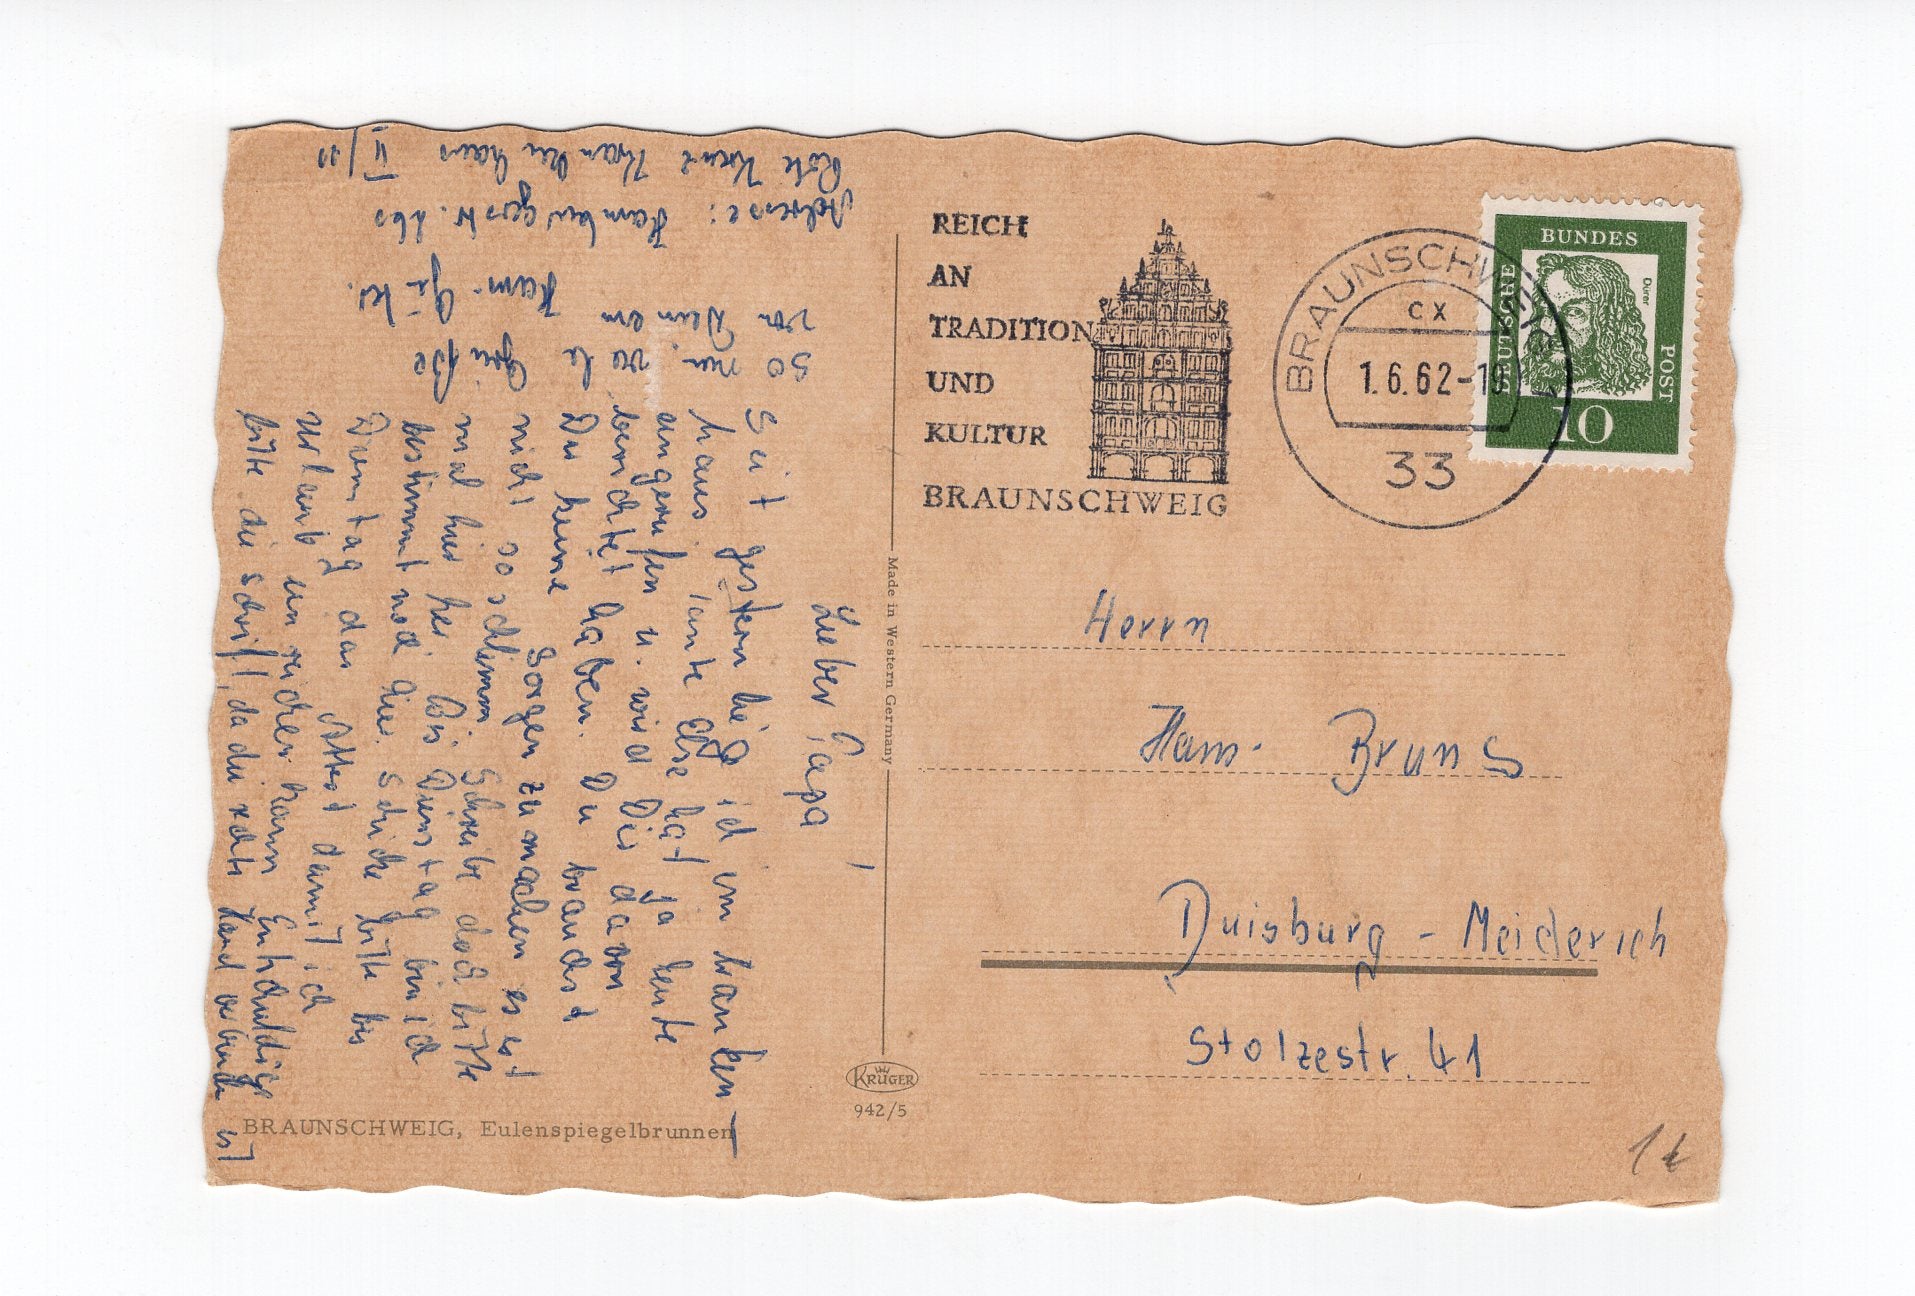 Adresse: Hamburgerstr. 260
Rote Kreuz Krankenhaus II/11
Lieber Papa!
Seit gestern lieg ich im Kranken-
haus, Tante Else hat ja heute
angerufen u. wird Dir davon
berichtet haben. Du brauchst
Du keine Sorgen zu machen es ist
nicht so schlimm. Schreibe doch bitte
mal hier her. Bis Dienstag bin ich
bestimmt noch hier. Schicke bitte bis
Dienstag das Attest damit ich
Urlaub einreichen kann. Entschuldige
bitte die Schrift, da die rechte Hand verbunden ist
So nun viele Grüße
von Deinem Hans-Günter.
REICH
AN
TRADITION
UND
KULTUR
BRAUNSCHWEIG
BRAUNSCHWEIG
cx
1.6.62-19
33
DEUTSCHE BUNDESPOST
Dürer
10
Herrn
Hans Bruns
Duisburg - Meiderich
Stolzestr. 41
Made in Western Germany
KRÜGER
942/5
BRAUNSCHWEIG, Eulenspiegelbrunnen
1€